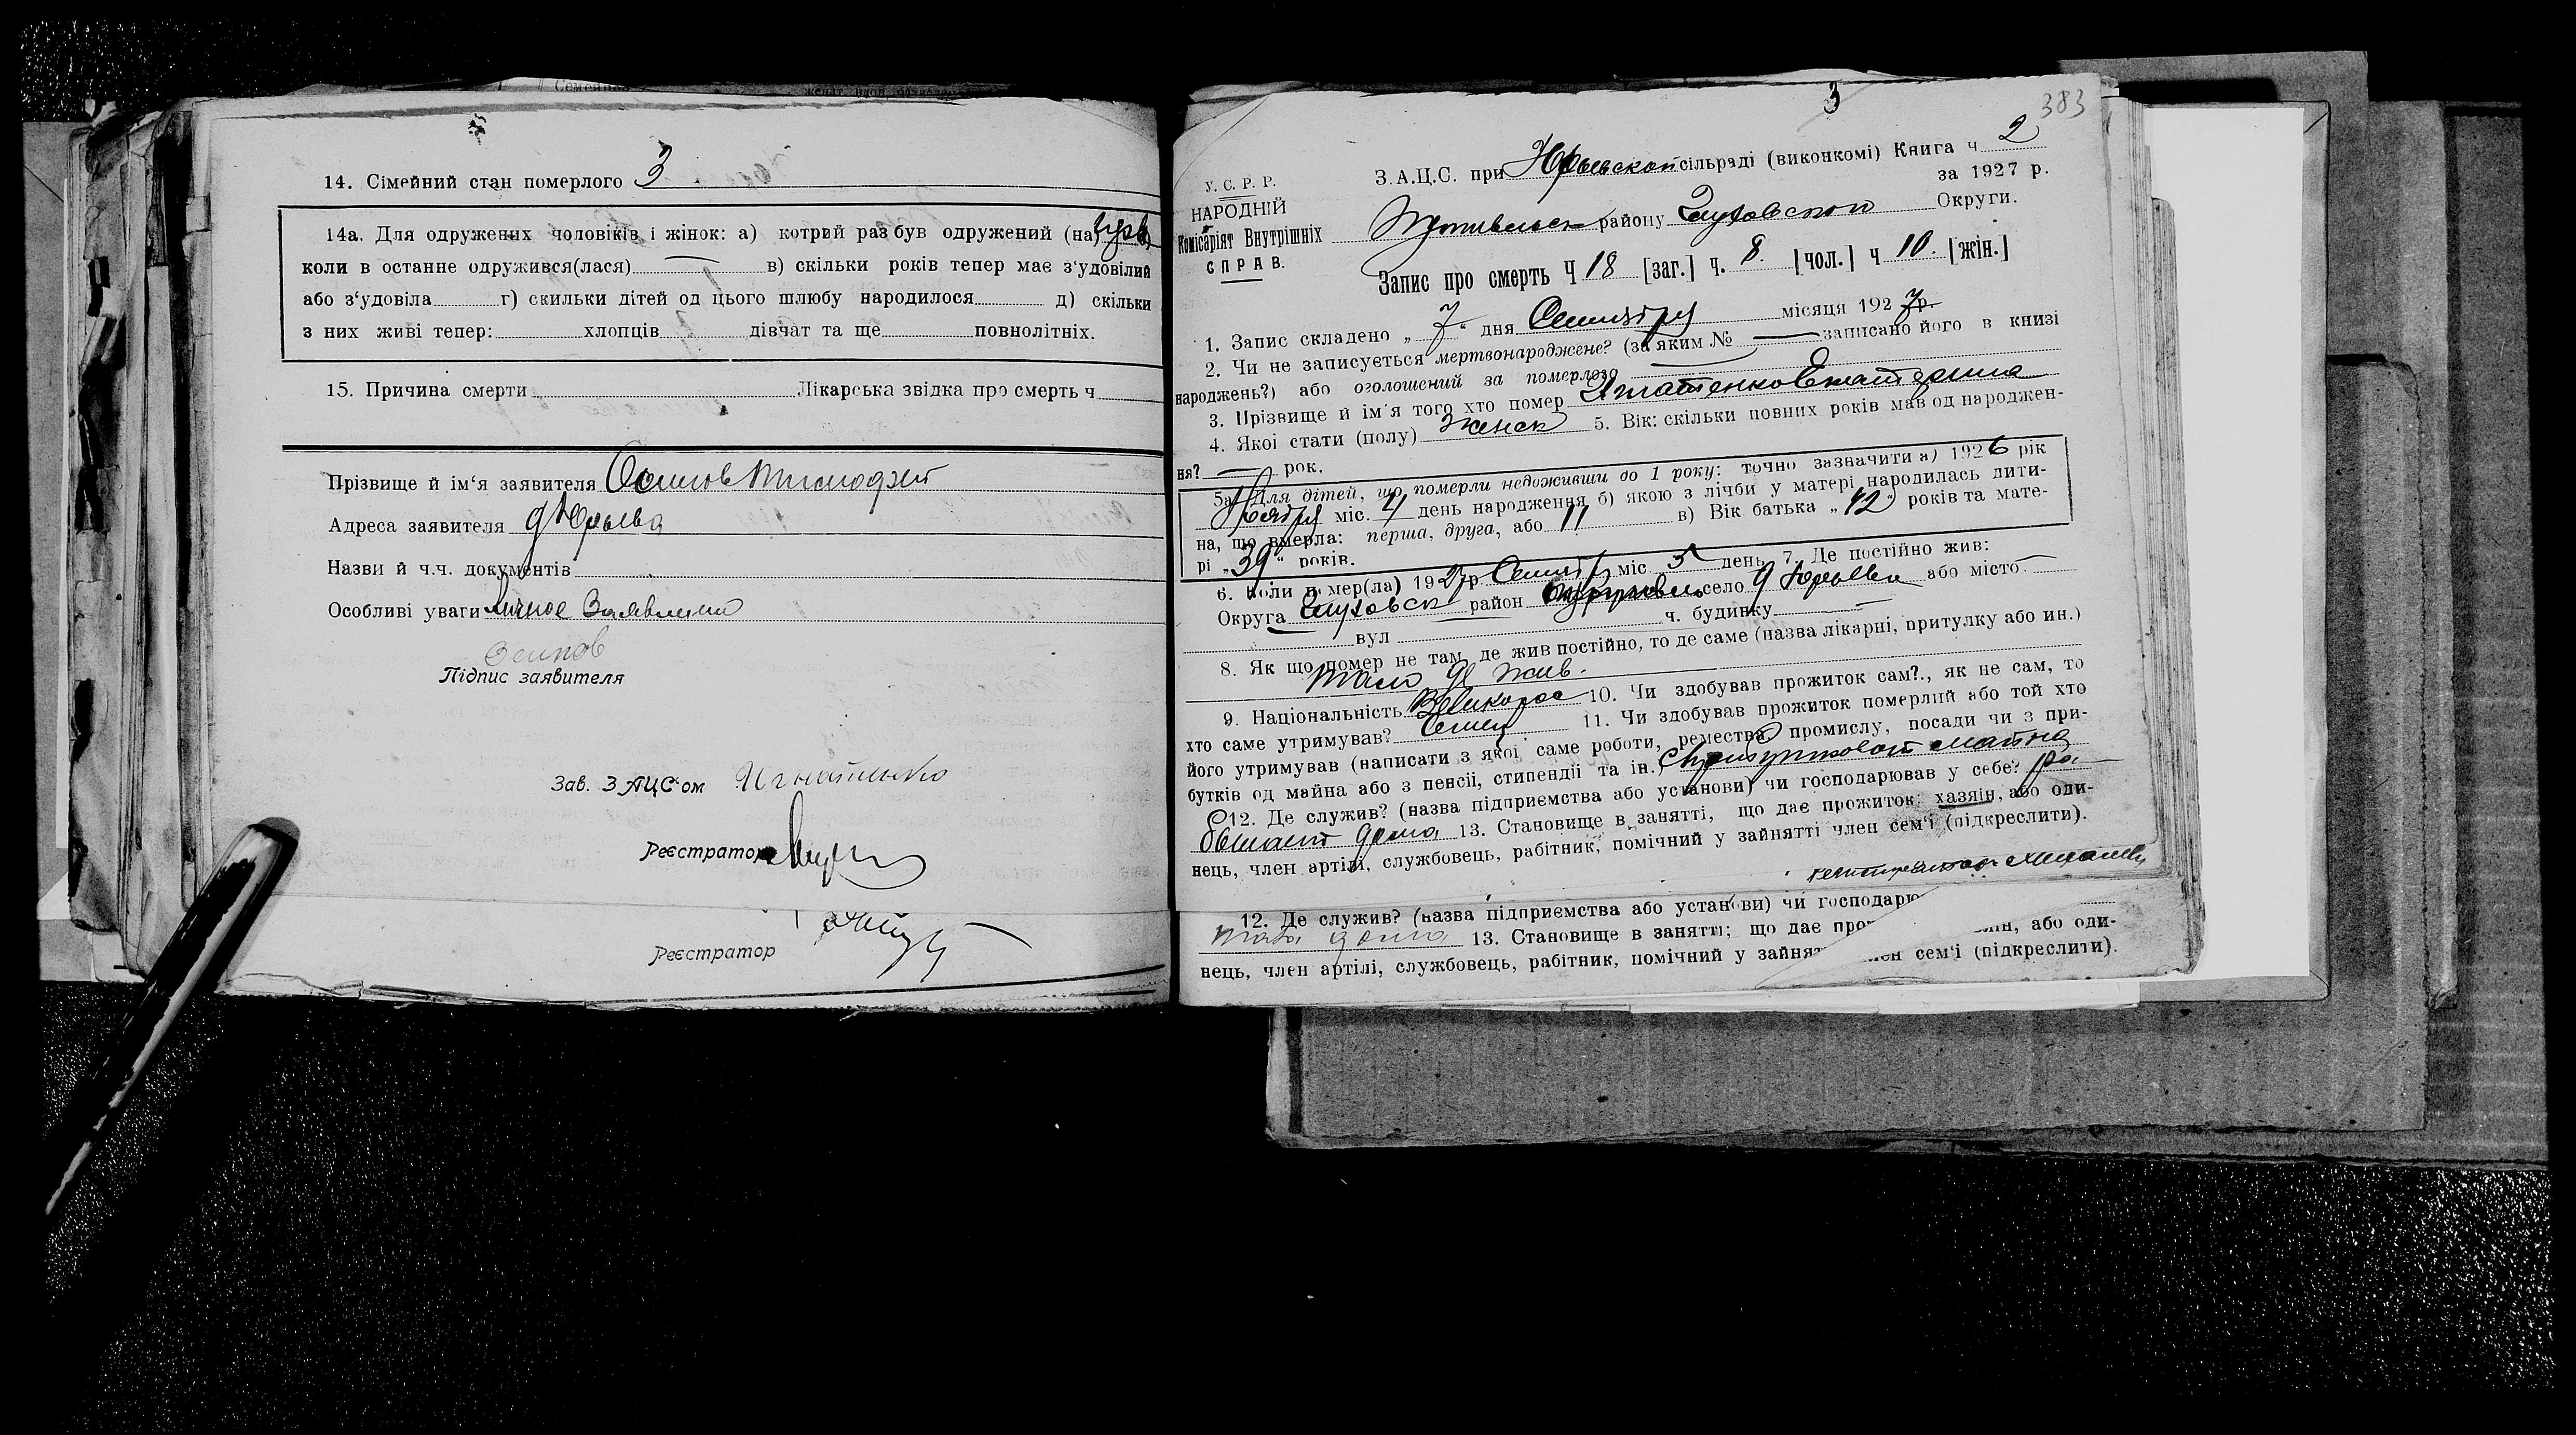 14. Сімейний стан померлого 3
14а. Для одружених чоловіків і жінок: а) котрий раз був одружений (на)
коли в останне одружився(лася) — в) скільки років тепер має з'удовілий
або з'удовіла г) скильки дітей од цього шлюбу народилося д) скільки
з них живі тепер: хлопців дівчат та ще повнолітніх.
15. Причина смерти Лікарська звідка про смерть ч
Прізвище й ім'я заявителя Осипов
Адреса заявителя д Юрьева
Назви й ч.ч. документів
Особливі уваги Личное Заявление
Осипов
Підпис заявителя
Зав. ЗАЦС'ом Игнатенко
Реєстратор
Реєстратор
3
383
У. С. Р. Р.
НАРОДНІЙ
Комісаріят Внутрішніх
СПРАВ.
З.А.Ц.С. при Юрьевской сільраді (виконкомі) Книга ч 2
за 1927 р.
Путивльск району Глуховского Округи.
Запис про смерть Ч 18 [заг.] ч. 8. [чол.] ч 10. [жін.]
1. Запис складено „ 7 “ дня Сентября місяця 1927 р.
2. Чи не записується мертвонароджене? (за яким № — записано його в книзі
народжень?) або оголошений за померлого
3. Прізвище й ім'я того хто помер Игнатенко Екатерина
4. Якої стати (полу) Женск 5. Вік: скільки повних років мав од народжен-
ня? — рок.
5а) Для дітей, що померли недоживши до 1 року: точно зазначити а) 1926 рік
Ноября міс. 4 день народження б) якою з лічби у матері народилась дити-
на, що вмерла: перша, друга, або 11 в) Вік батька „ 42 “ років та мате-
рі „39“ років.
6. Коли помер(ла) 1927р Сентября міс 5 день 7. Де постійно жив:
Округа Глуховск район село д Юрьева або місто —
вул ч. будинку —
8. Як що помер не там, де жив постійно, то де саме (назва лікарні, притулку або ин.)
там де жив.
9. Національність Великорос 10. Чи здобував прожиток сам?., як не сам, то
хто саме утримував? Семья 11. Чи здобував прожиток померлий або той хто
його утримував (написати з якої саме роботи, ремества, промислу, посади чи з при-
бутків од майна або з пенсії, стипендії та ін.)
12. Де служив? (назва підприємства або установи) чи господарював у себе? ра-
ботает дома 13. Становище в занятті, що дає прожиток: хазяїн, або оди-
нець, член артілі, службовець, рабітник, помічний у зайнятті член сем'ї (підкреслити).
12. Де служив? (назва підприємства або установи) чи господарю
дома 13. Становище в занятті; що дає про їн, або оди-
нець, член артілі, службовець, рабітник, помічний у зайня ен сем'ї (підкреслити).